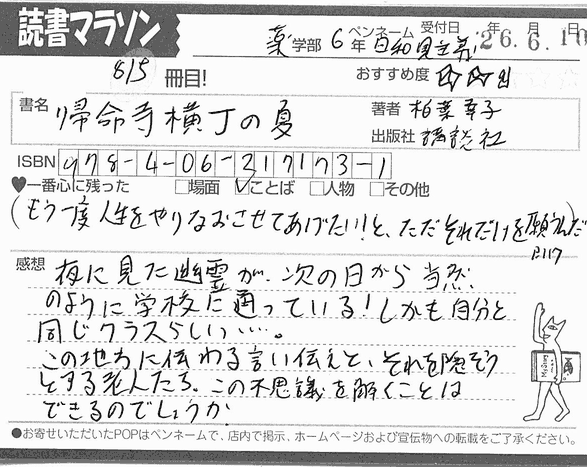 読書マラソン
薬学部 6年 ペンネーム 日和見主義 受付日 年 月 日 26.6.10
815 冊目! おすすめ度 ☆☆
書名 帰命寺横丁の夏 著者 柏葉幸子
出版社 講談社
ISBN 978-4-06-217173-1
♥一番心に残った □場面 ☑ことば □人物 □その他
(もう一度人生をやりなおさせてあげたい!と、ただそれだけを願うんだ P.117)
感想 夜に見た幽霊が、次の日から当然
のように学校に通っている!しかも自分と
同じクラスらしい…。
この地方に伝わる言い伝えと、それを隠そう
とする老人たち。この不思議を解くことは
できるのでしょうか
●お寄せいただいたPOPはペンネームで、店内で掲示、ホームページおよび宣伝物への転載をご了承ください。